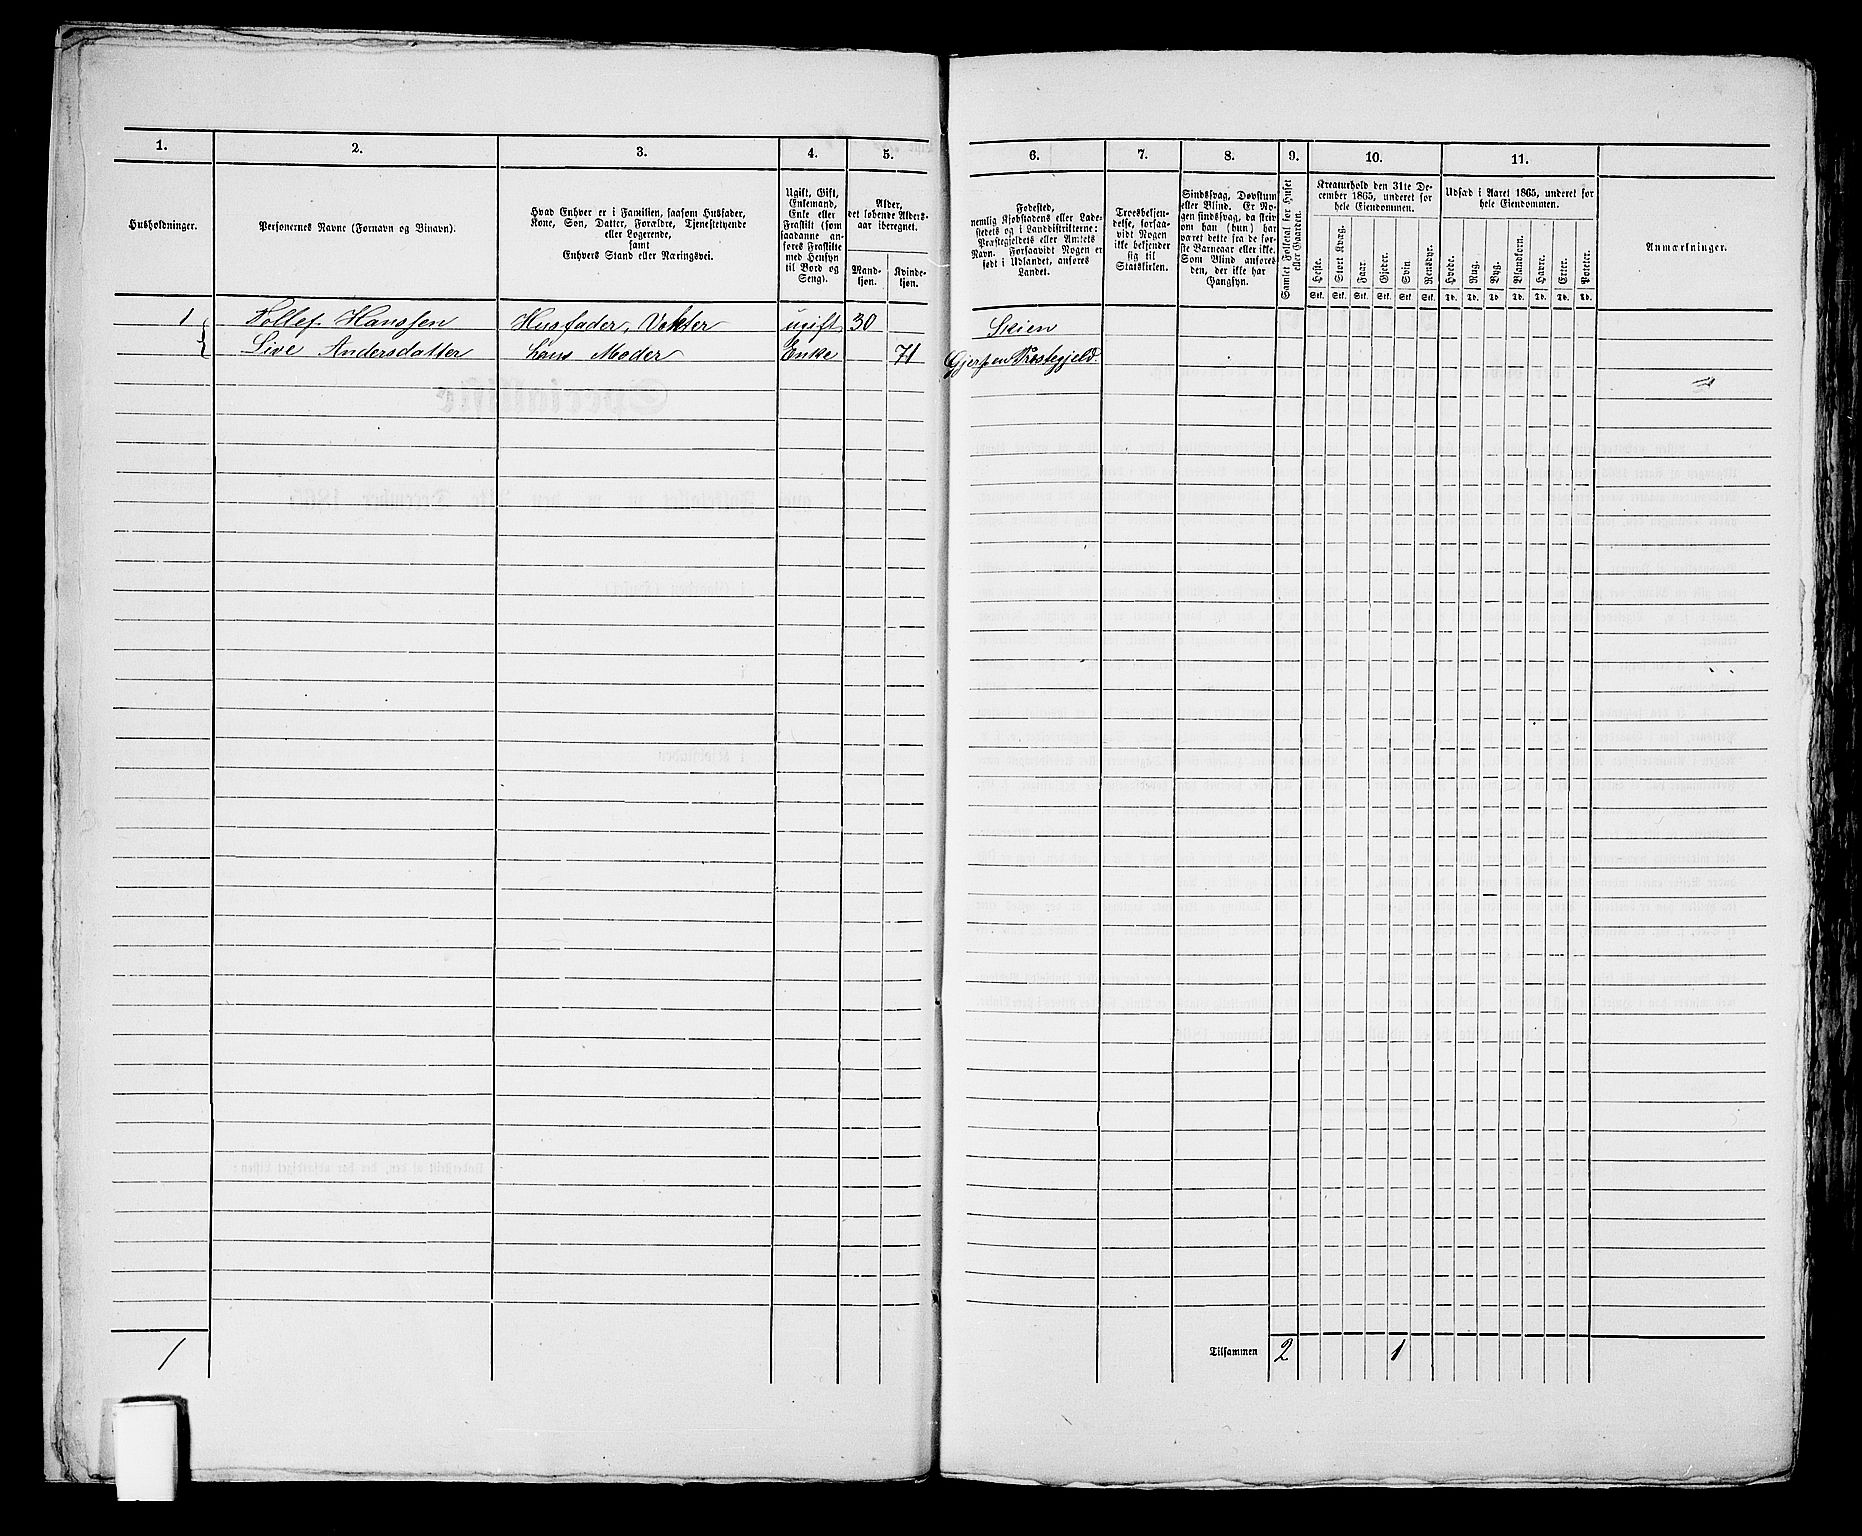 1. 2. 3. 4. 5.
Husholdninger.
Personernes Navne (Fornavn og Binavn).
Hvad Enhver er i Familien, saasom Husfader,
Kone, Søn, Datter, Forældre, Tjenestetyende
eller Logerende,
samt
Enhvers Stand eller Næringsvei.
Ugift, Gift,
Enkemand,
Enke eller
Fraskilt (som
saadanne an-
føres Fraskilte
med Hensyn
til Bord og
Seng).
Alder,
det løbende Alders-
aar iberegnet.
Mand-
kjøn.
Kvinde-
kjøn.
1 Tollef Hanssen Husfader, Vekter ugift 30
Live Andersdatter hans Moder Enke 71
1
6. 7. 8. 9. 10. 11.
Fødested,
nemlig Kjøbstadens eller Lade-
stedets og i Landdistrikterne:
Præstegjeldets eller Amtets
Navn. Forsaavidt Nogen er
født i Udlandet, anføres
Landet.
Troesbekjen-
delse, forsaa-
vidt Nogen
ikke bekjender
sig til
Statskirken.
Sindssvag, Døvstum
eller Blind. Er No-
gen sindssvag, da skriv
om han (hun) har
været dette fra de før-
ste Barneaar eller ikke.
Som Blind anføres
den, der ikke har
Gangsyn.
Samlet Folketal for Huset
eller Gaarden.
Kreaturhold den 31te De-
cember 1865, underet for
hele Eiendommen.
Heste. Stort Kvæg. Faar. Gjeder. Svin. Rensdyr.
Stk. Stk. Stk. Stk. Stk. Stk.
Udsæd i Aaret 1865, underet for
hele Eiendommen.
Hvede. Rug. Byg. Blandkorn. Havre. Erter. Poteter.
Td. Td. Td. Td. Td. Td. Td.
Anmærkninger.
Skien
Gjerpen Præstegjeld.
Tilsammen 2 1